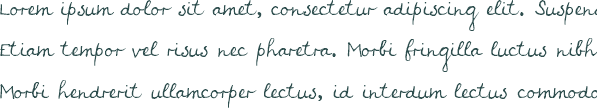 Lorem ipsum dolor sit amet, consectetur adipiscing elit.
Etiam tempor vel risus nec pharetra. Morbi fringilla luctus nibh
Morbi hendrerit ullamcorper lectus, id interdum lectus commodo